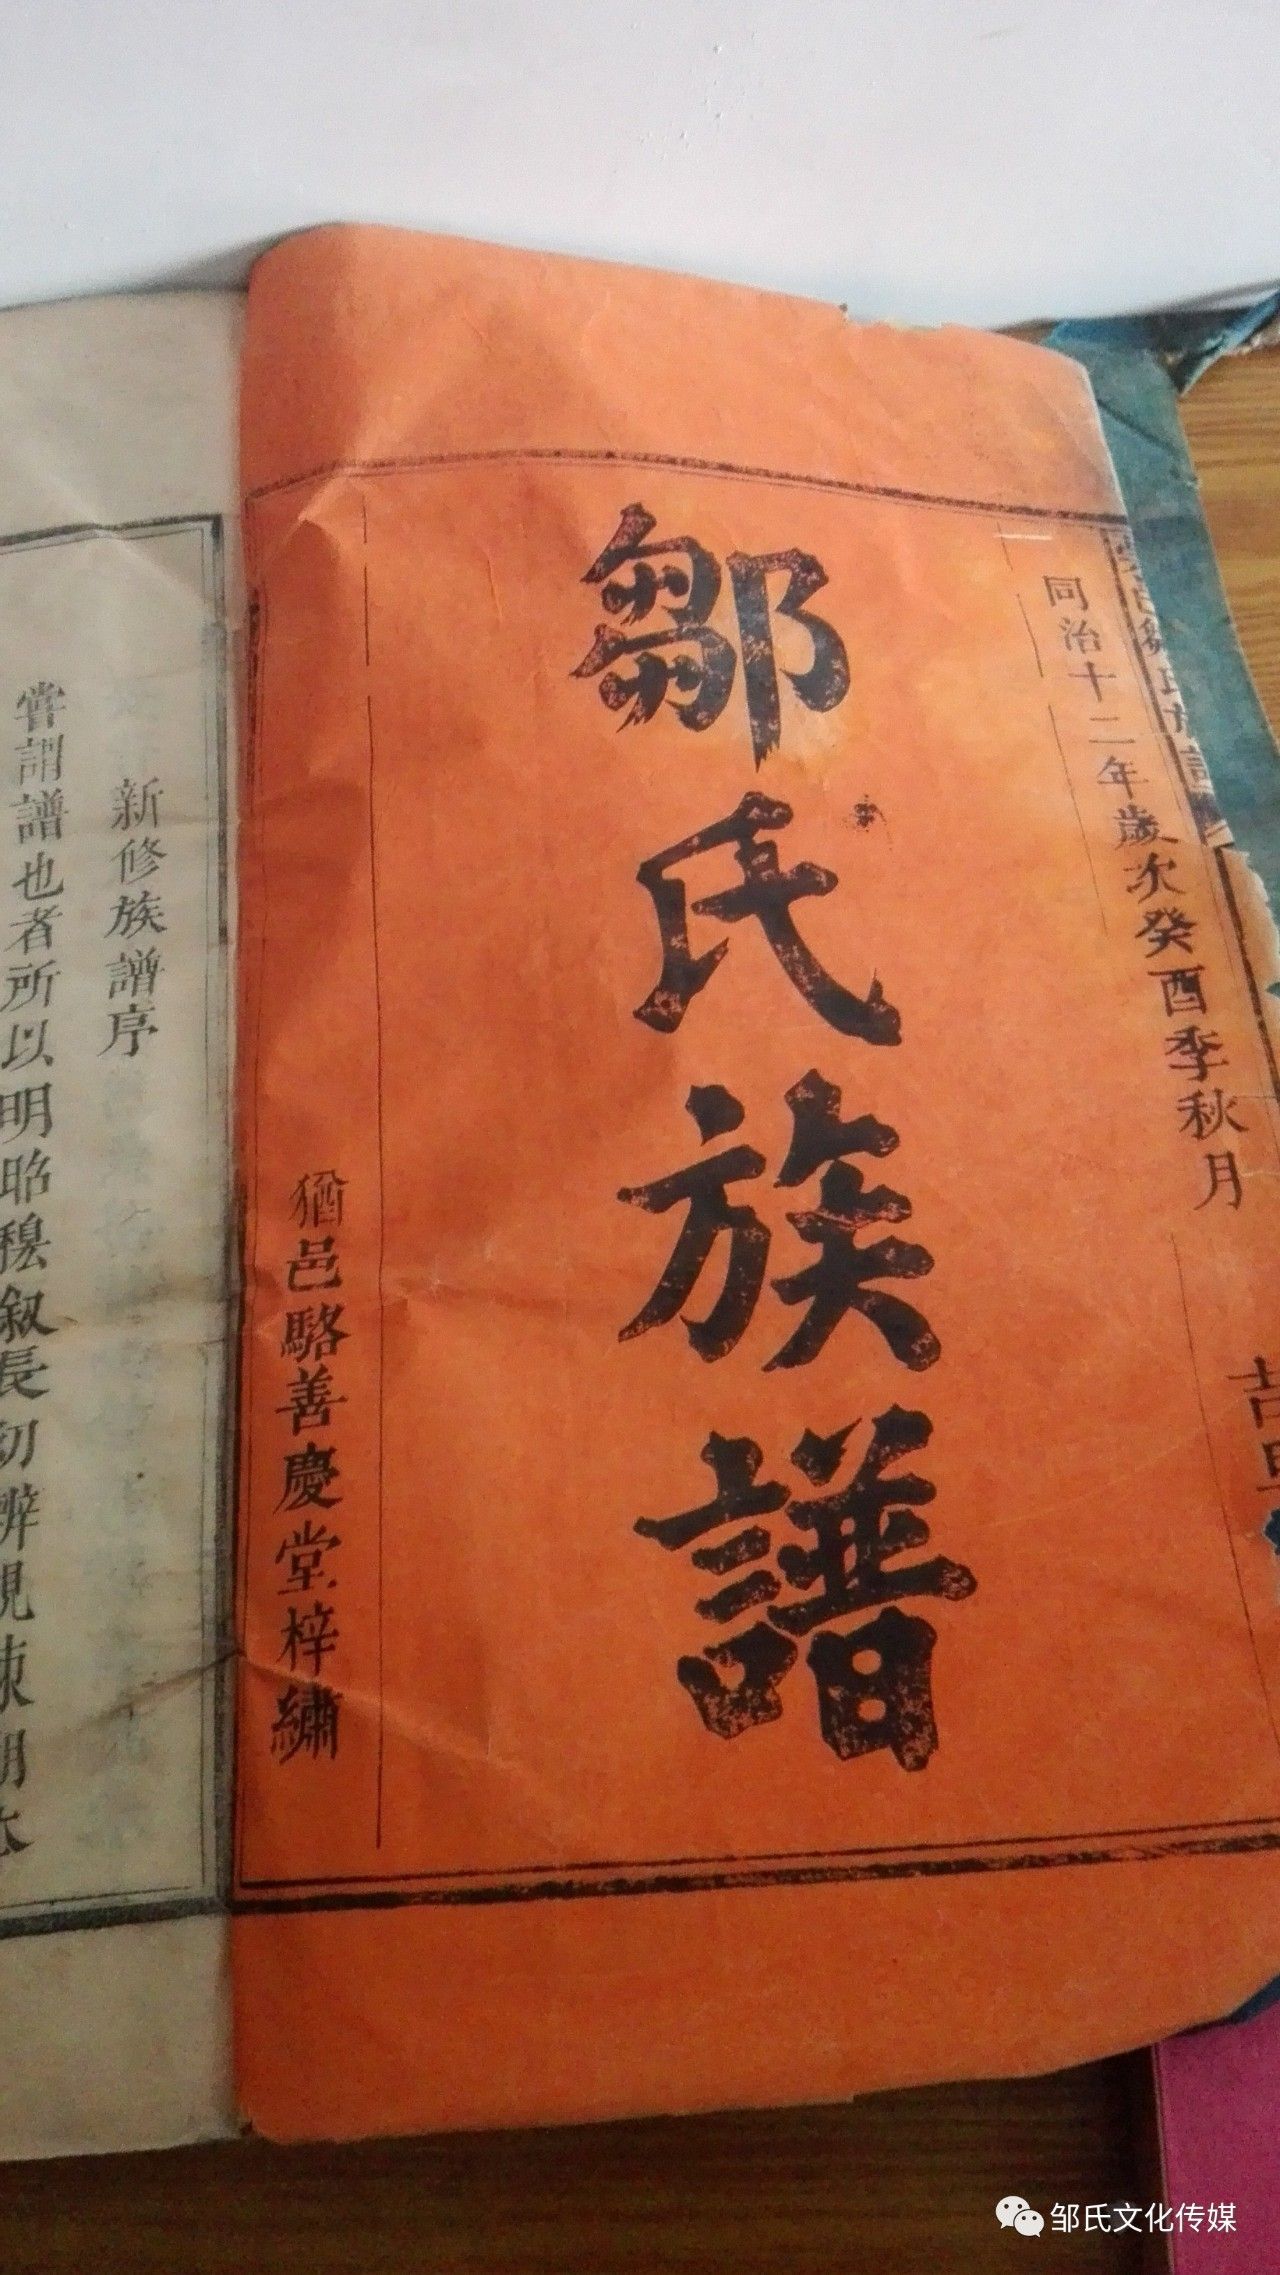 同治十二年歲次癸酉季秋月
鄒氏族譜
猶邑駱善慶堂梓繡
新修族譜序
嘗謂譜也者所以明昭穆叙長幼辨親疎
邹氏文化传媒